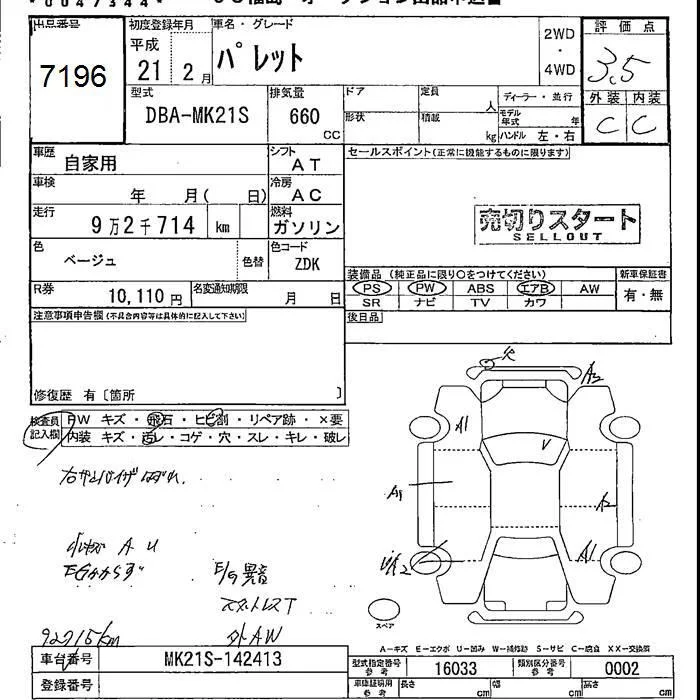 * 0 0 4 7 3 4 4 *
出品番号 初度登録年月 車名・グレード 2WD・4WD 評価点
7196 平成 21 2月 パレット 3.5
型式 排気量 ドア 定員 人 ディーラー・並行 外装 内装
DBA-MK21S 660 CC 形状 積載 kg モデル年式 年 ハンドル 左・右 C C
車歴 自家用 シフト AT セールスポイント(正常に機能するものに限ります)
車検 年 月( 日) 冷房 AC
走行 9万2千714 km 燃料 ガソリン 売切りスタート
SELLOUT
色 ベージュ 色替 色コード ZDK
装備品 (純正品に限り○をつけてください) 新車保証書
R券 10,110円 名変通知期限 月 日 PS PW ABS エアB AW 有・無
SR ナビ TV カワ
注意事項申告欄(不具合内容等は具体的に記入して下さい) 後日品
修復歴 有〔箇所 〕
検査員記入欄 FW キズ・飛石・ヒビ割・リペア跡・×要
内装 キズ・汚レ・コゲ・穴・スレ・キレ・破レ
A1 V
A2
A1
小キズ A U
E/G異音
スペア
92715km 外AW
A-キズ E-エクボ U-凹み W-補修跡 S-サビ C-腐食 XX-交換済
車台番号 MK21S-142413 型式指定番号 参考 16033 類別区分番号 参考 0002
登録番号 車庫証明用 参考 長さ cm 幅 cm 高さ cm